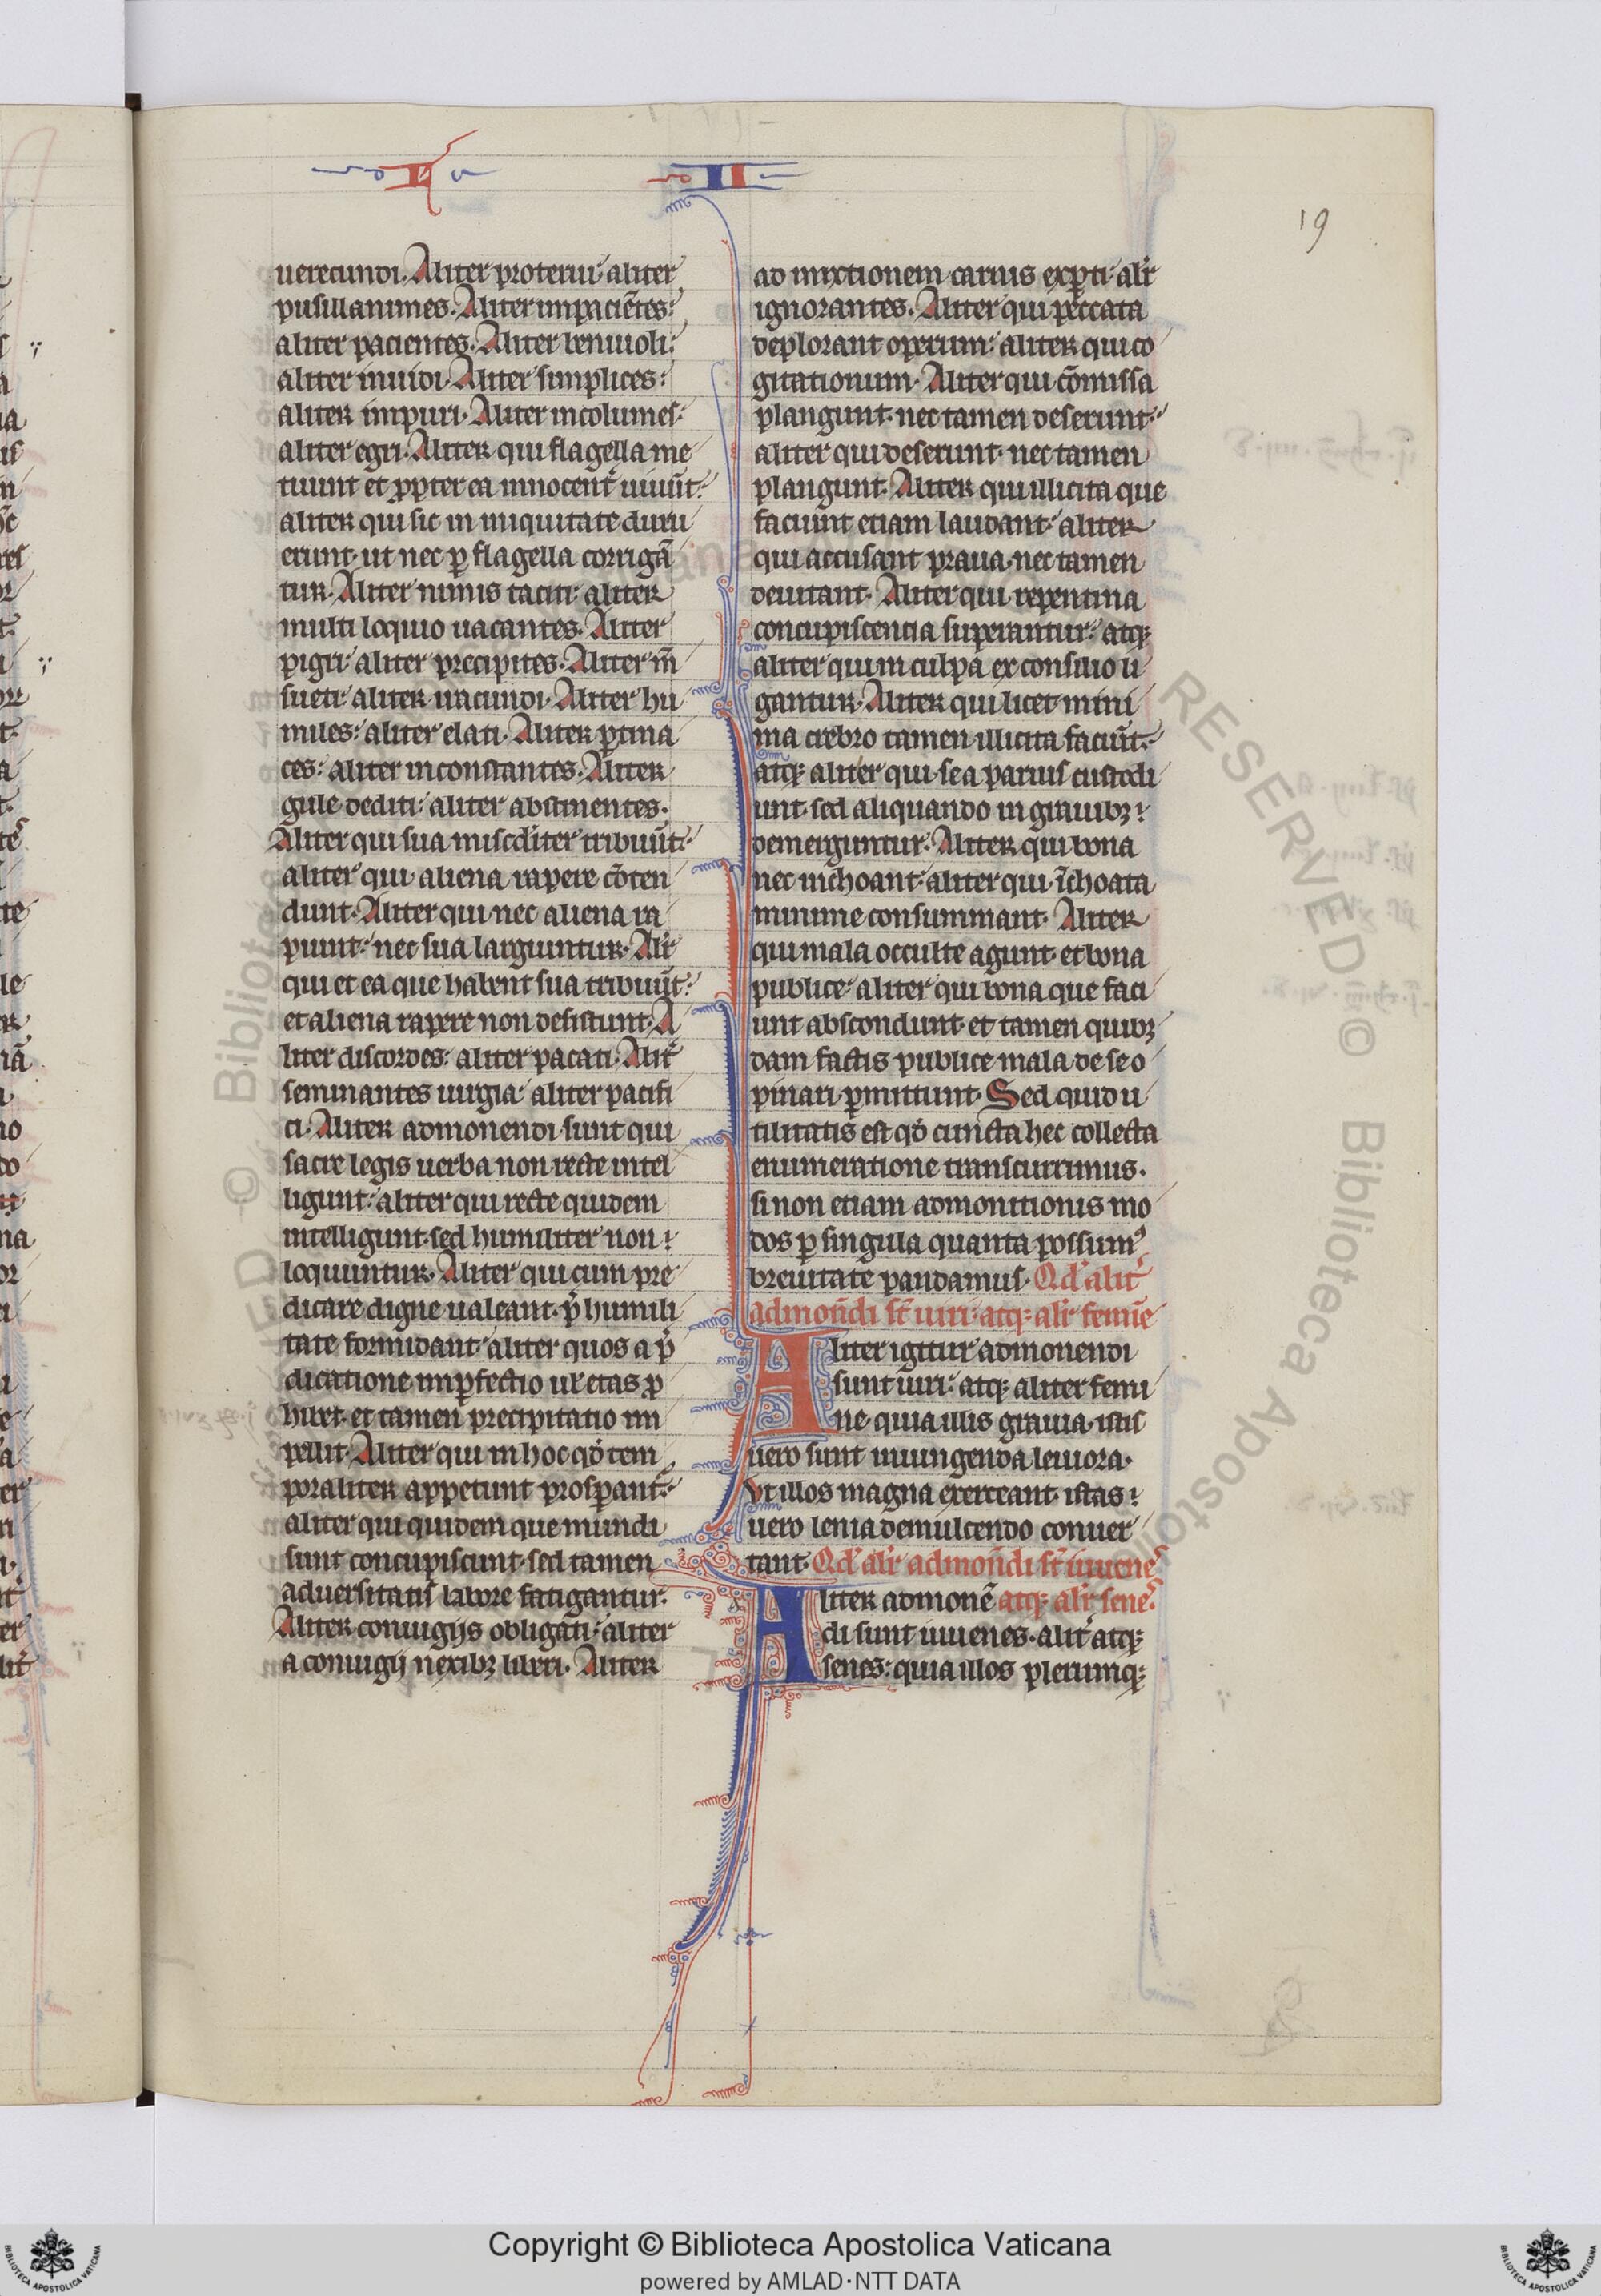 19
uerecundi. Aliter proterui: aliter
pusillanimes. Aliter inpaciētes:
aliter pacientes. Aliter beniuoli:
aliter inuidi. Aliter simplices:
aliter impuri. Aliter incolumes:
aliter egri. Aliter qui flagella me
tuunt et ꝓpterea innocent̄ uiuūt:
aliter qui sic in iniquitate duru
erunt. ut nec ꝑ flagella corrigā
tur. Aliter nimis taciti: aliter
multiloquio uacantes. Aliter
pigri: aliter precipites. Aliter m̄
sueti: aliter iracundi. Aliter hu
miles: aliter elati. Aliter ꝑtina
ces: aliter inconstantes. Aliter
gule dediti: aliter abstinentes.
Aliter qui sua miscd'iter tribuūt:
aliter qui aliena rapere cōten
dunt. Aliter qui nec aliena ra
piunt: nec sua largiuntur. Alit̄
qui et ea que habent sua tribuūt:
et aliena rapere non desistunt. A
liter discordes: aliter pacati. Alit̄
seminantes iurgia: aliter pacifi
ci. Aliter admonendi sunt qui
sacre legis uerba non recte intel
ligunt: aliter qui recte quidem
intelligunt. sed humiliter non
loquuntur. Aliter qui cum pre
dicare digne ualeant. p̄ humili
tate formidant: aliter quos a p̄
dicatione inꝑfectio uel etas ꝓ
hibet. et tamen precipitatio im
pellit. Aliter qui in hoc qd̄ tem
poraliter appetunt prosꝑant̄:
aliter qui quidem que mundi
sunt concupiscunt. sed tamen
aduersitatis labore fatigantur.
Aliter coniugijs obligati: aliter
a coniugij nexibꝫ liberi. Aliter
II
ad mixtionem carnis exꝑti: alit̄
ignorantes. Aliter qui peccata
deplorant operum: aliter qui co
gitationum. Aliter qui cōmissa
plangunt. nec tamen deserunt:
aliter qui deserunt. nec tamen
plangunt. Aliter qui illicita que
faciunt etiam laudant: aliter
qui accusant praua. nec tamen
deuitant. Aliter qui repentina
concupiscencia superantur: atqꝫ
aliter qui in culpa ex consilio li
gantur. Aliter qui licet mini
ma crebro tamen illicita faciūt:
atqꝫ aliter qui se a paruis custodi
unt. sed aliquando in grauibꝫ
demerguntur. Aliter qui bona
nec inchoant: aliter qui īchoata
minime consummant. Aliter
qui mala occulte agunt. et bona
publice: aliter qui bona que faci
unt abscondunt. et tamen quibꝫ
dam factis publice mala de se o
pinari ꝑmittunt. Sed quid u
tilitatis est qd̄ cuncta hec collecta
enumeratione transcurrimus.
si non etiam admonitionis mo
dos ꝑ singula quanta possumꝰ
breuitate pandamus. Qd' alit̄
admon̄di st̄ uiri. atqꝫ alit̄ femīe
Aliter igitur admonendi
sunt uiri: atqꝫ aliter femi
ne. quia illis grauia. istis
uero sunt iniungenda leuiora.
Vt illos magna exerceant. istas
uero lenia demulcendo conuer
tant. Qd' alit̄ admon̄di st̄ iuuenes
Aliter admonē atqꝫ alit̄ senes.
di sunt iuuenes. alit̄ atqꝫ
senes: quia illos plerumqꝫ
RESERVED © Biblioteca Apostolica
© Biblioteca
Copyright © Biblioteca Apostolica Vaticana
powered by AMLAD·NTT DATA
BIBLIOTECA APOSTOLICA VATICANA
BIBLIOTECA APOSTOLICA VATICANA